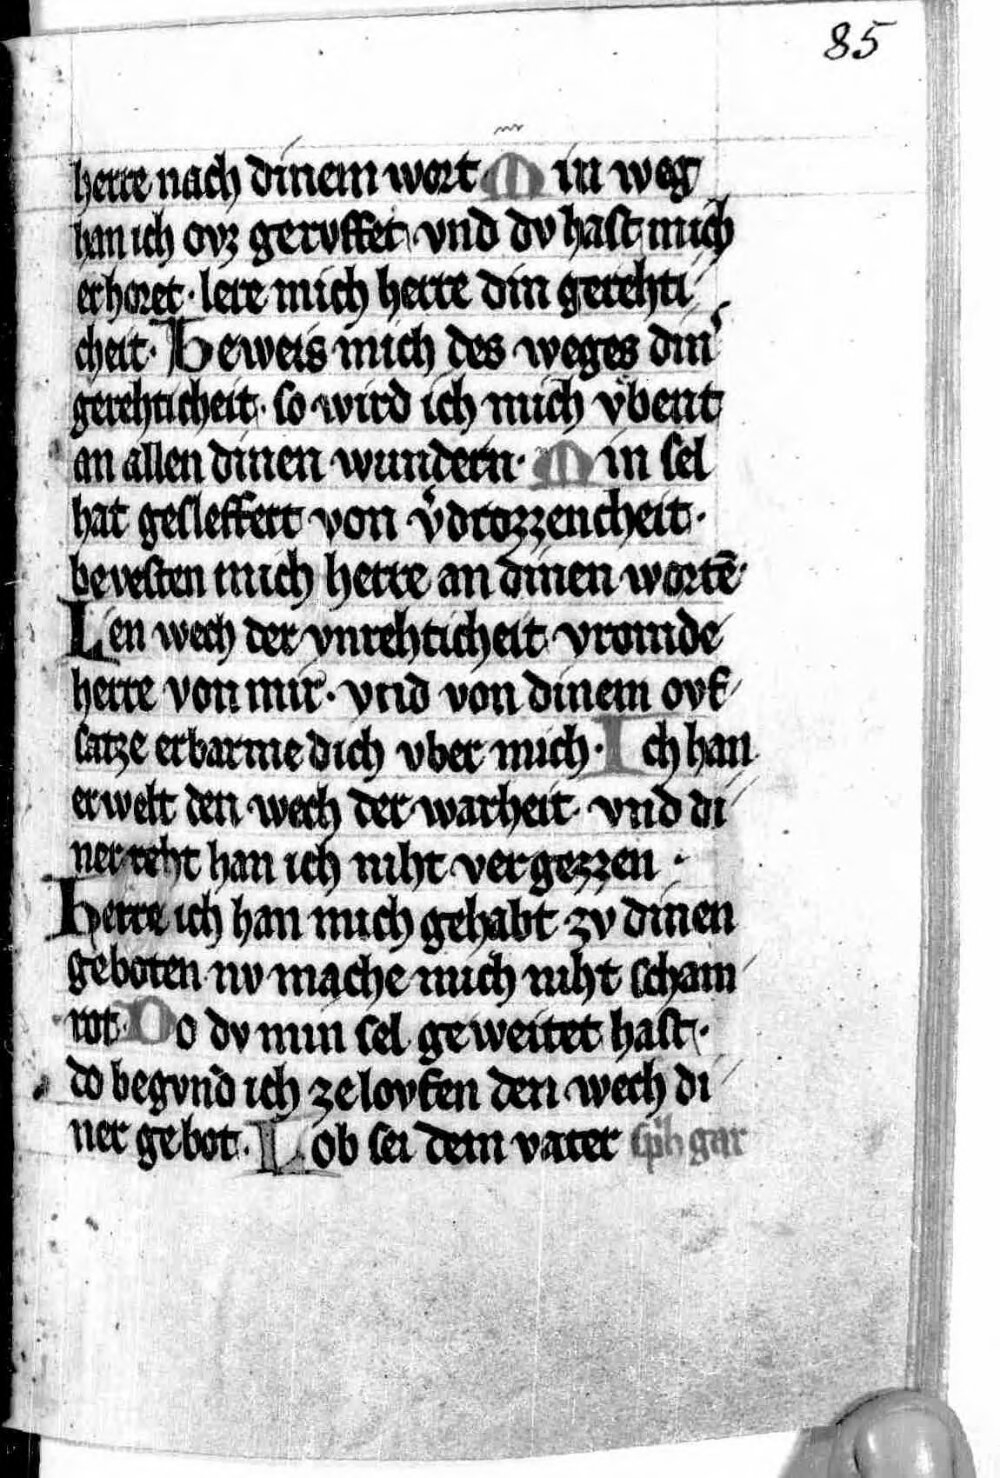 85
herre nach dinem wort Min weg
han ich ovz gervffet vnd dv hast mich
erhoret · lere mich herre din gerehti
cheit · Beweis mich des weges din͛
gerehticheit · so wird ich mich vbent
an allen dinen wundern · Min sel
hat gesleffert von v͛drozzencheit ·
bevesten mich herre an dinen wortē ·
Den wech der vnrehticheit vromde
herre von mir · vnd von dinem ovf
satze erbarme dich vber mich · Ich han
erwelt den wech der warheit · vnd di
ner reht han ich niht vergezzen ·
Herre ich han mich gehabt zv dinen
geboten nv mache mich niht scham
rot · Do dv min sel geweitet hast ·
do begvnd ich ze lovfen den wech di
ner gebot · Lob sei dem vater gar